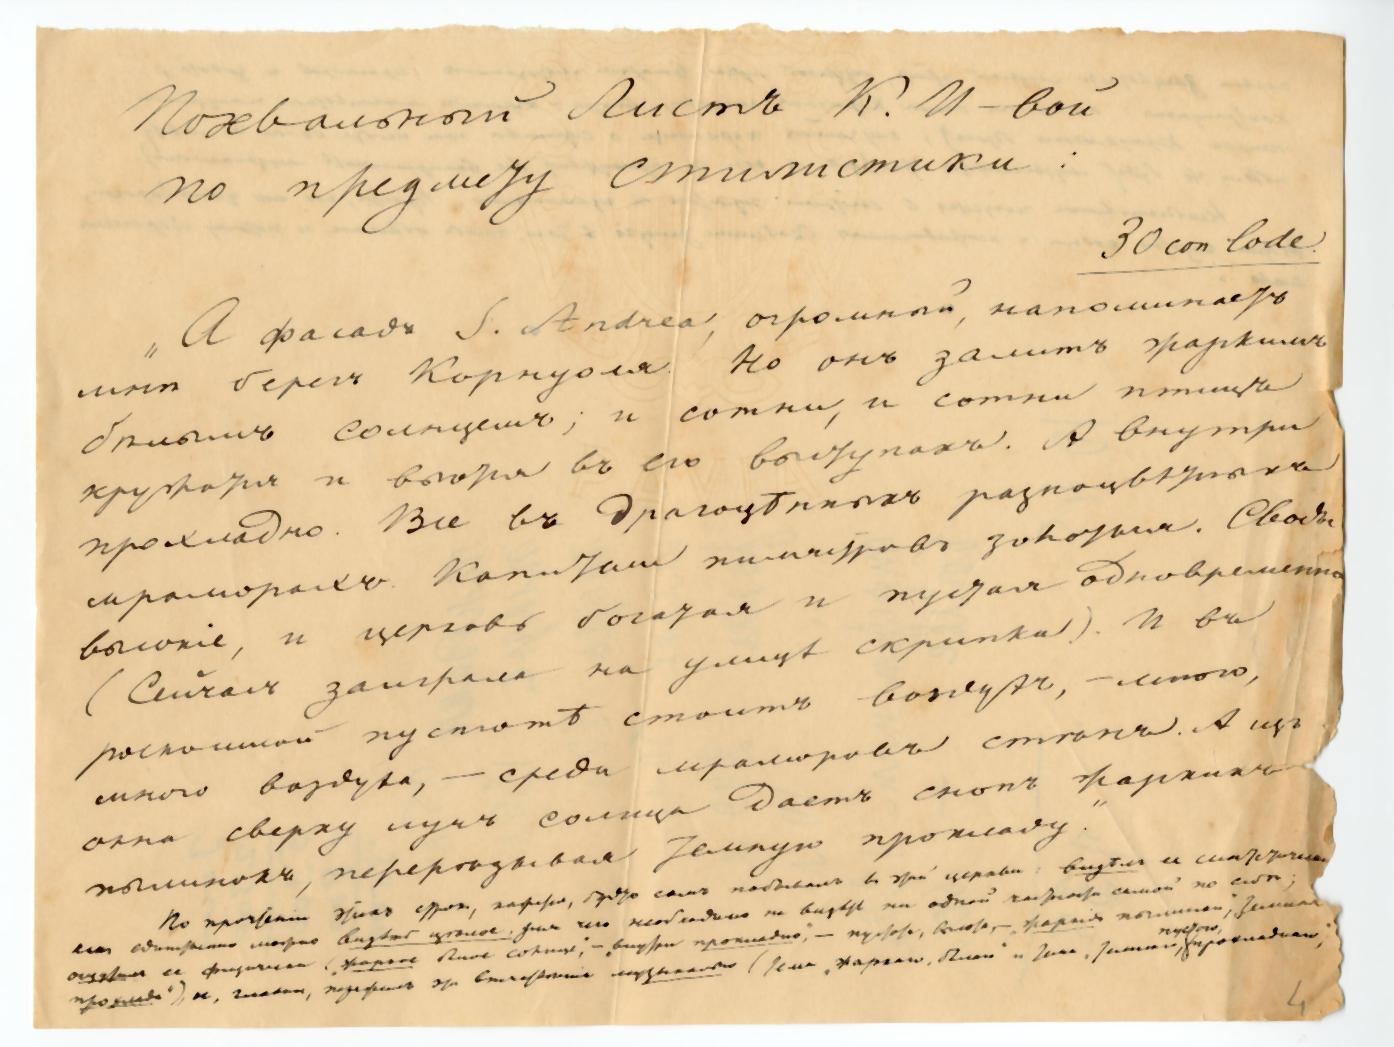 Похвальный Листъ К. И-вой
по предмету стилистики:
30 con lode.
„А фасадъ S. Andrea, огромный, напоминаетъ
мнѣ берегъ Корнуоля. Но онъ залитъ жаркимъ
бѣлымъ солнцемъ; и сотни, и сотни птицъ
кружатся и вьются въ его выступахъ. А внутри
прохладно. Все въ драгоцѣнныхъ разноцвѣтныхъ
мраморахъ. Капители пилястровъ золотыя. Своды
высокіе, и церковь богатая и пустая одновременно
(Сейчасъ заиграла на улицѣ скрипка). И въ
роскошной пустотѣ стоитъ воздухъ, – много,
много воздуха, – среди мраморовъ стѣнъ. А изъ
окна сверху лучъ солнца даетъ снопъ жаркихъ
пылинокъ, перерѣзывая темную прохладу."
По прочтеніи этихъ строкъ, будто самъ побывалъ въ этой церкви: видѣлъ ее
какъ единство можно видѣть цѣлое, для чего необходимо не видѣть ни одной частности самой по себѣ;
ее физически („жаркое бѣлое солнце", – „внутри прохладно", – „жаркія пылинки", „темная
прохлада"), и, главное, музыкально (тема „жаркаго, бѣлаго" и тема „темнаго, пустого, прохладнаго",
4